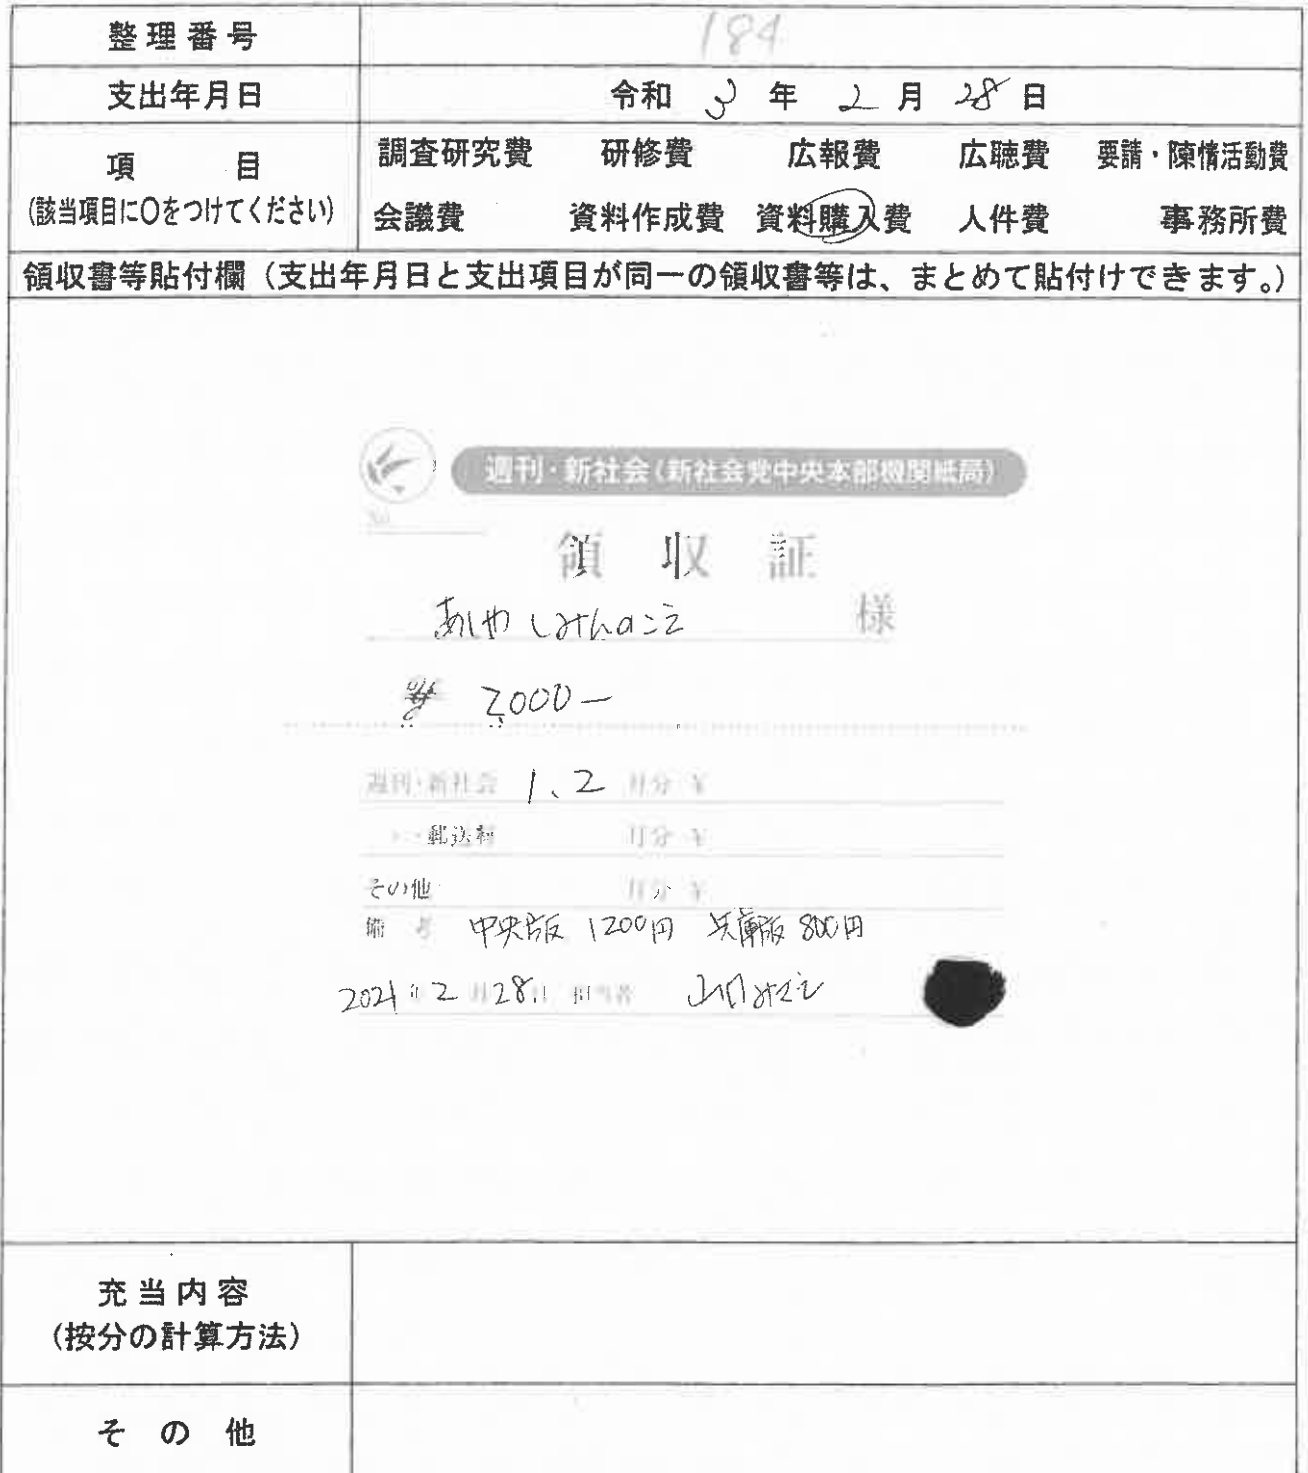 整理番号 184
支出年月日 令和 3 年 2 月 28 日
項 目 調査研究費 研修費 広報費 広聴費 要請・陳情活動費
(該当項目に〇をつけてください) 会議費 資料作成費 資料購入費 人件費 事務所費
領収書等貼付欄(支出年月日と支出項目が同一の領収書等は、まとめて貼付けできます。)
週刊・新社会(新社会党中央本部機関紙局)
No.
領収証
あしや しみんのこえ 様
¥ 2000-
週刊・新社会 1、2 月分 ¥
〃・郵送料 月分 ¥
その他 月分 ¥
備考 中央版 1200円 兵庫版 800円
2021年 2 月 28日 担当者 山口みさえ
充当内容
(按分の計算方法)
その他